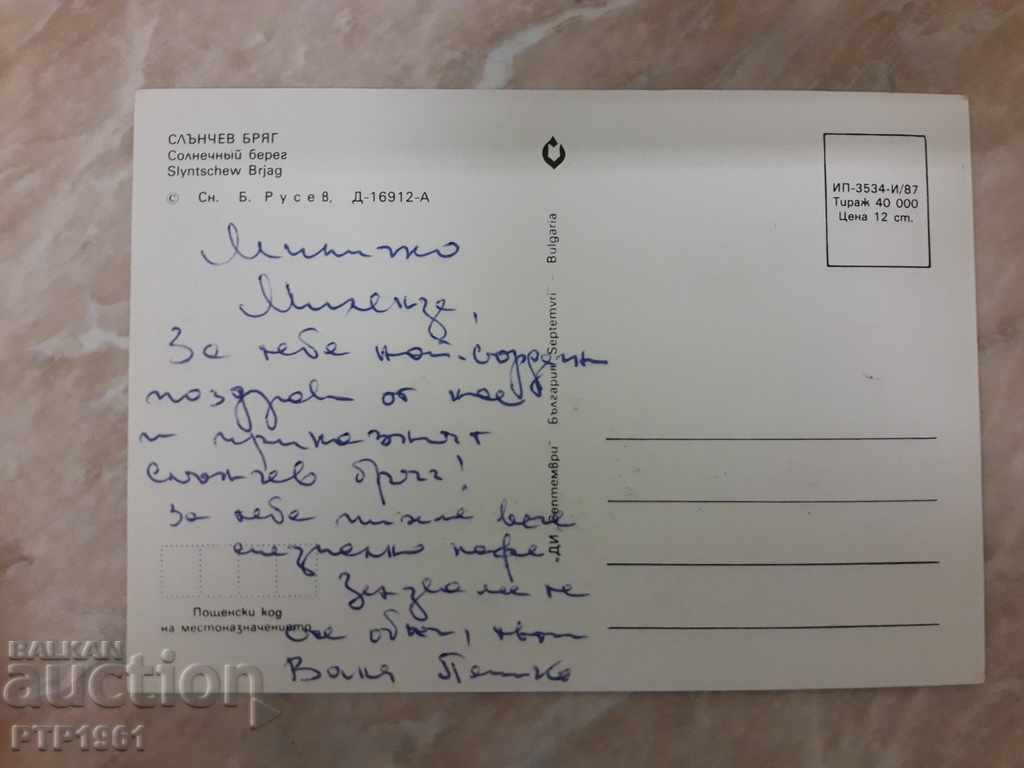 СЛЪНЧЕВ БРЯГ
Солнечный берег
Slyntschew Brjag
© Сн. Б. Русев, Д-16912-А
ИП-3534-И/87
Тираж 40 000
Цена 12 ст.
"ДИ Септември" България Septemvri Bulgaria
За тебе най-сърдечни
поздрави от нас
и приказният
слънчев бряг!
За тебе пихме вече
специално кафе
те обич, твоя
Ваня Петкова
Пощенски код
на местоназначението
BALKAN
auction
PTP1961